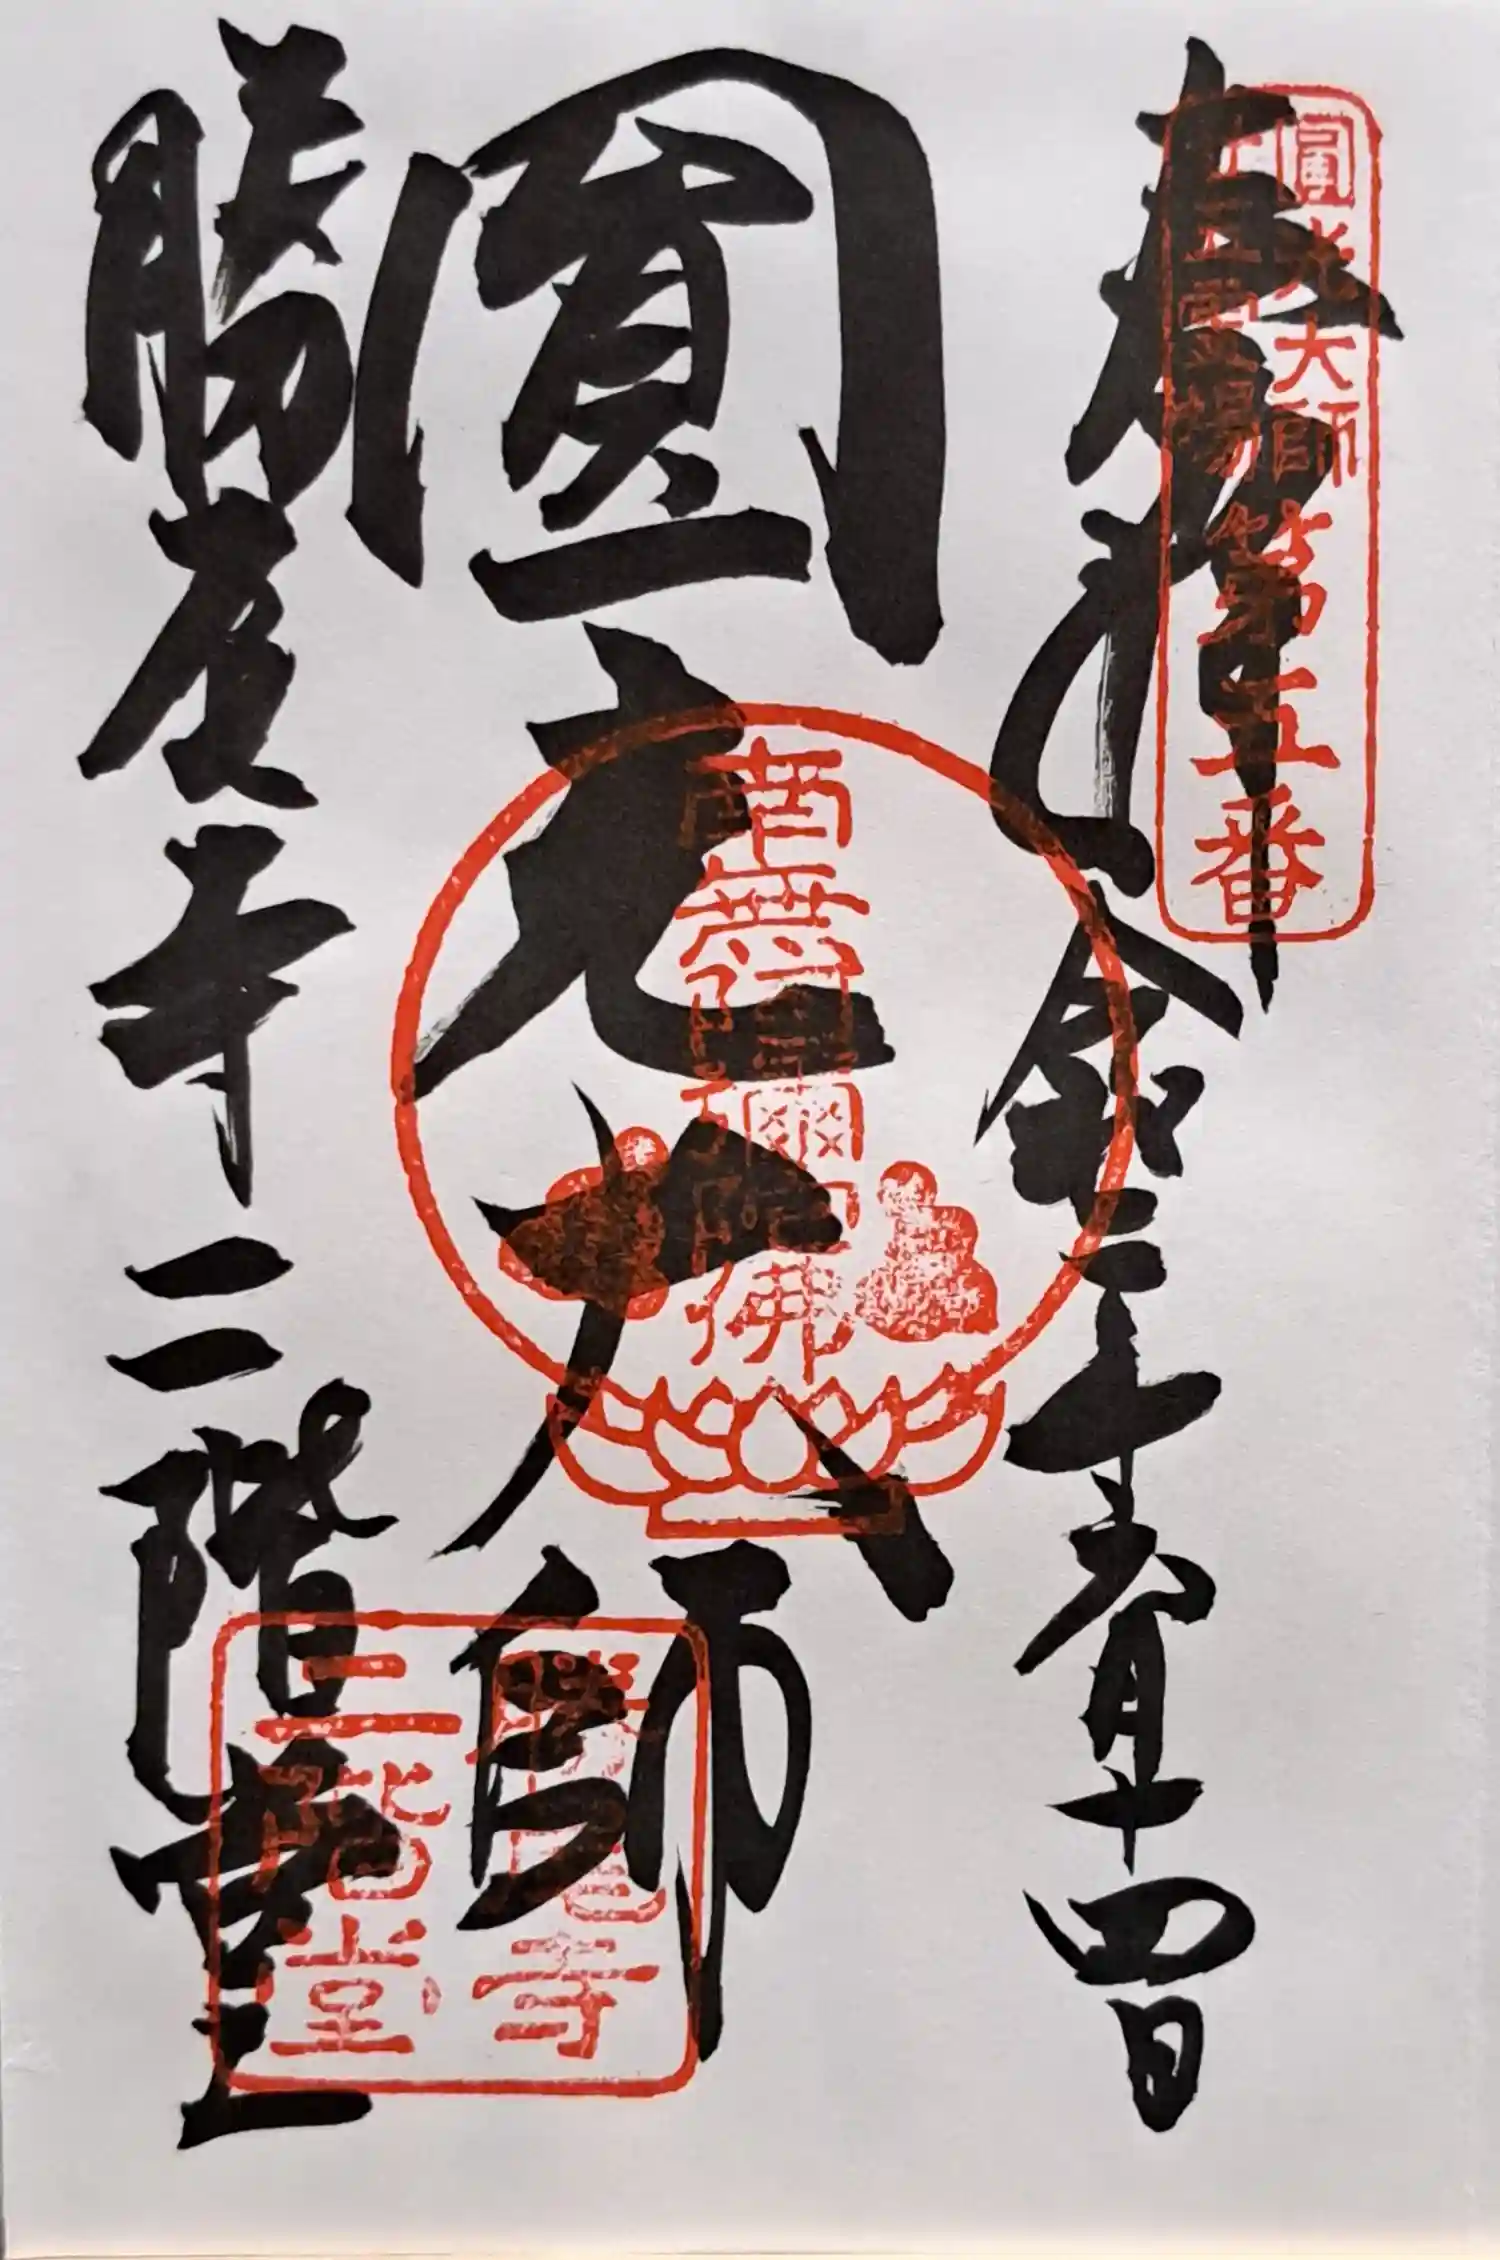 奉拝
令和三年六月十四日
圓光大師
勝尾寺二階堂
圓光大師
二十五霊場
第五番
南無阿彌陀佛
勝尾寺
二階堂